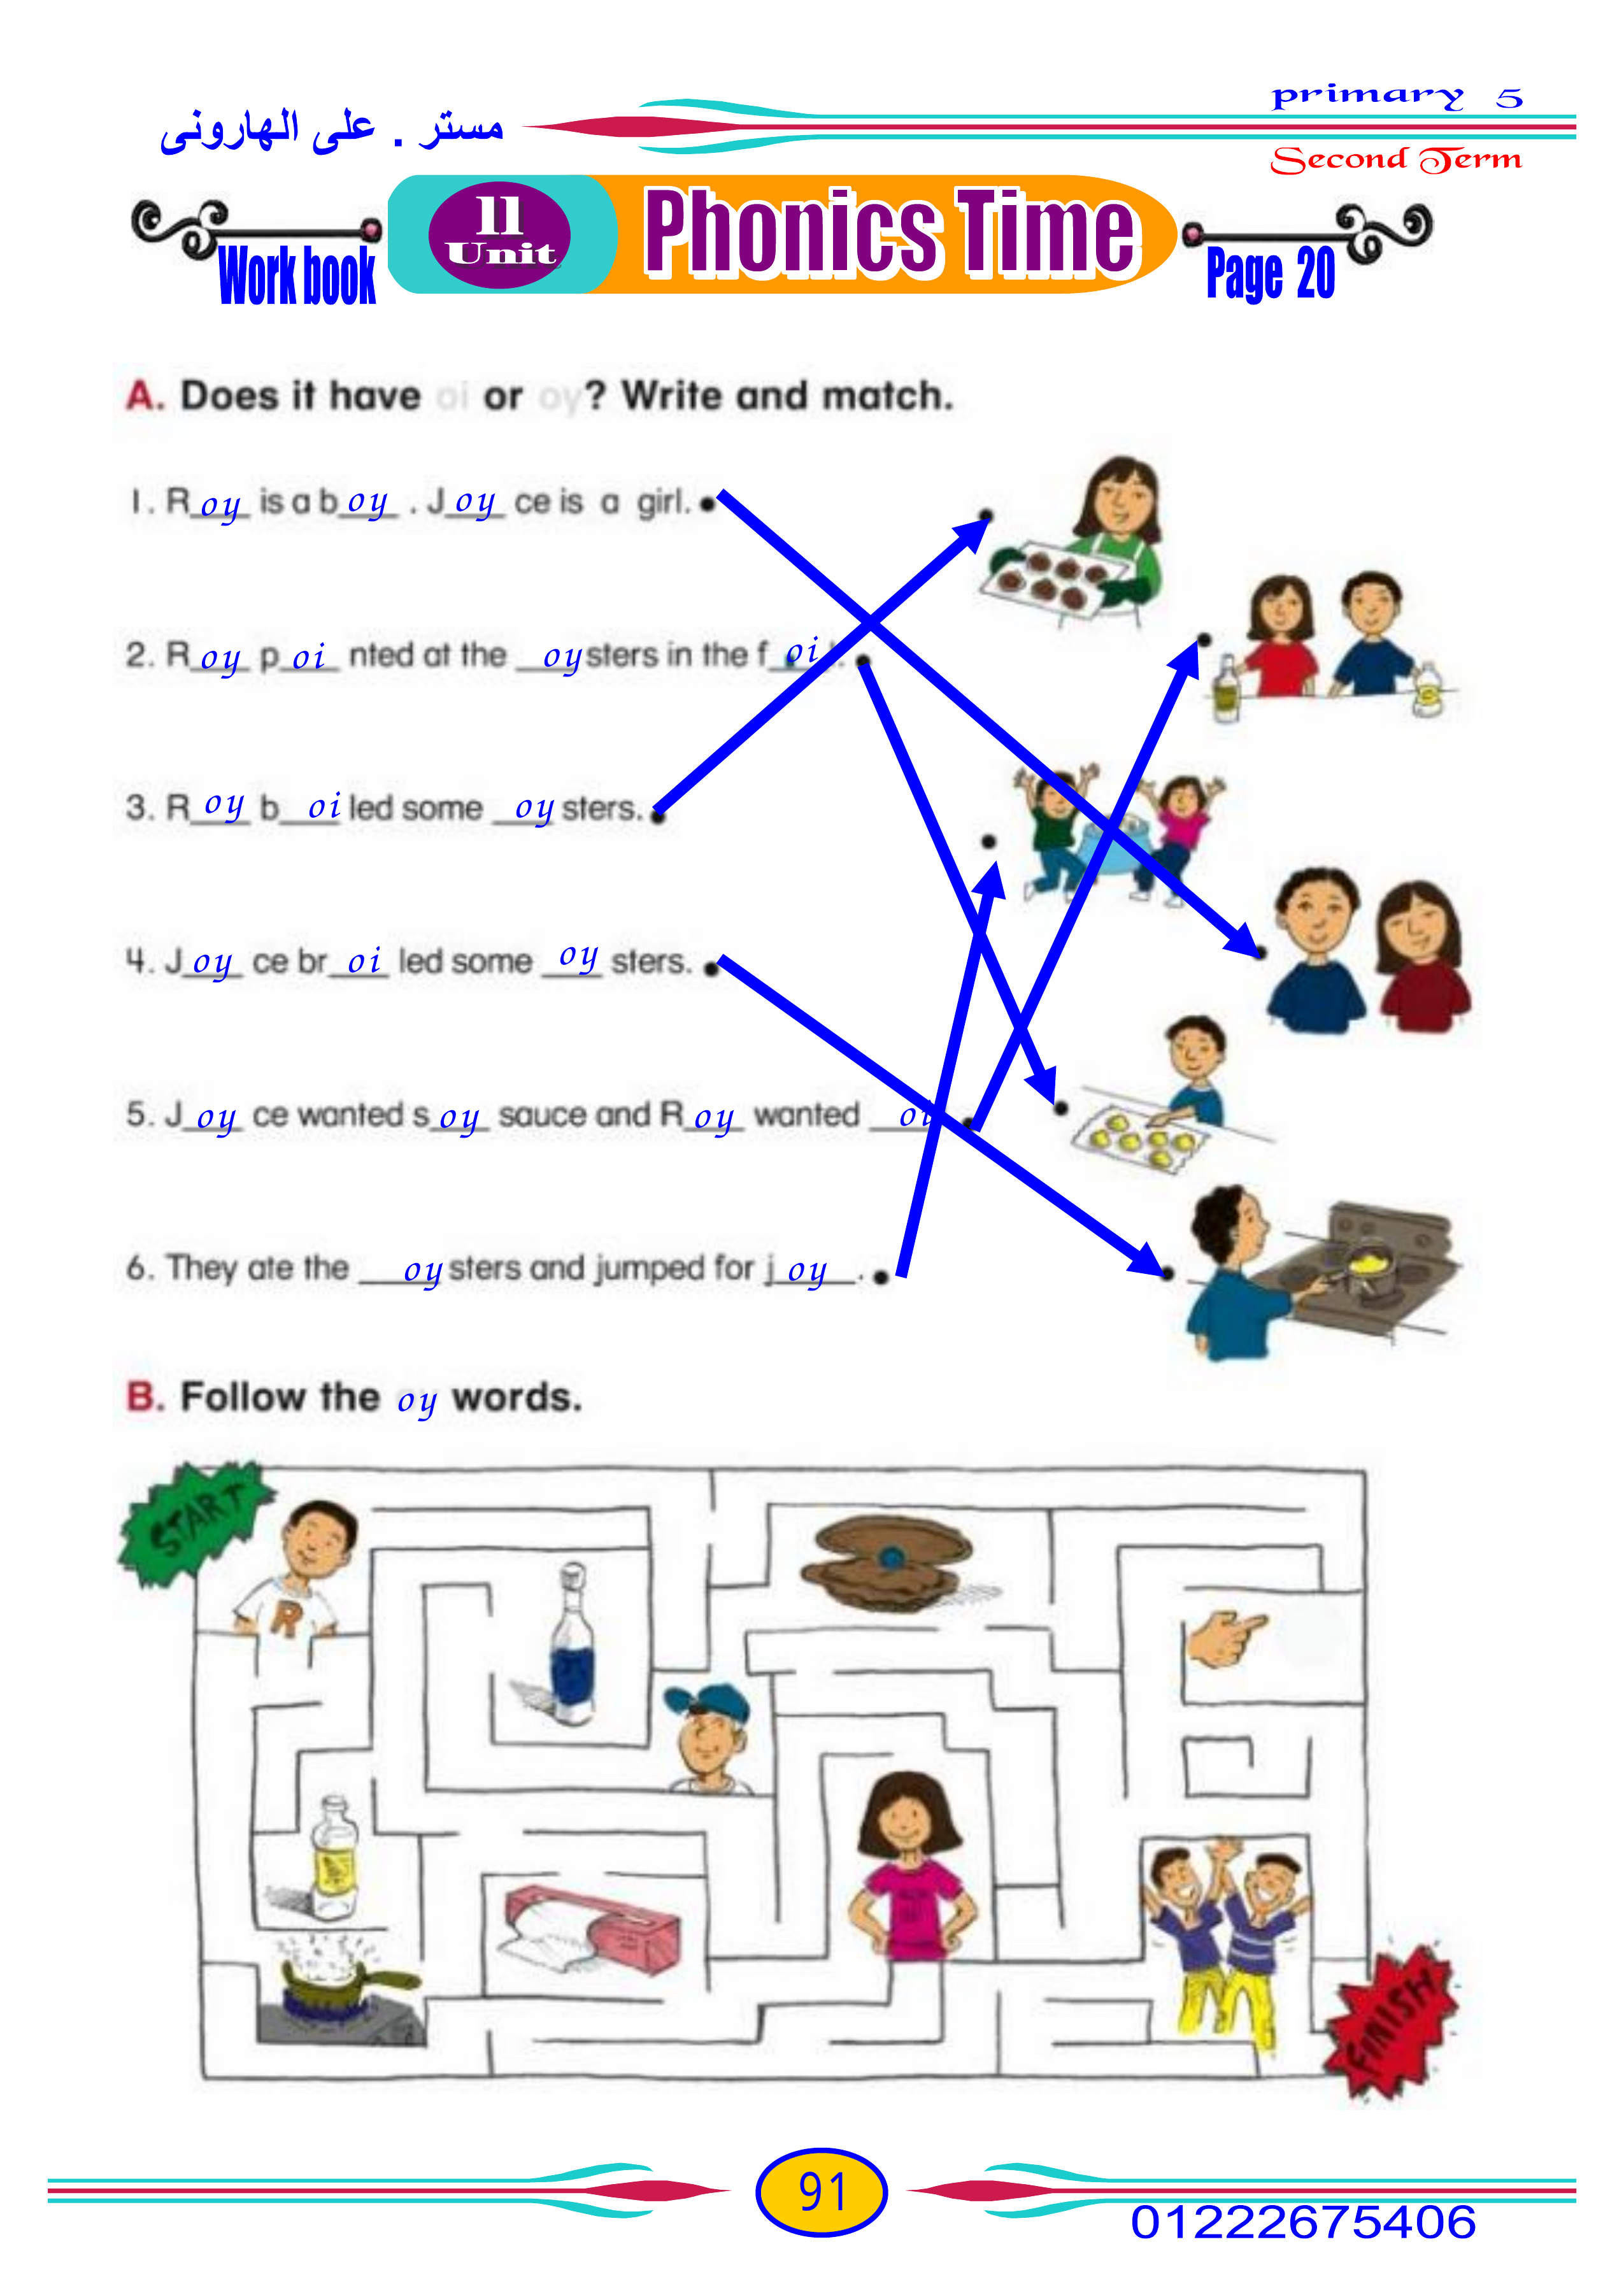 primary 5
مستر . على الهارونى
Second Term
11
Unit
Phonics Time
Work book
Page 20
A. Does it have oi or oy? Write and match.
1. Roy is a boy . Joy ce is a girl.
2. Roy poi nted at the oysters in the foi
3. Roy boiled some oy sters.
4. Joy ce broi led some oy sters.
5. Joy ce wanted soy sauce and Roy wanted oi
6. They ate the oysters and jumped for joy.
B. Follow the oy words.
START
R
FINISH
91
01222675406